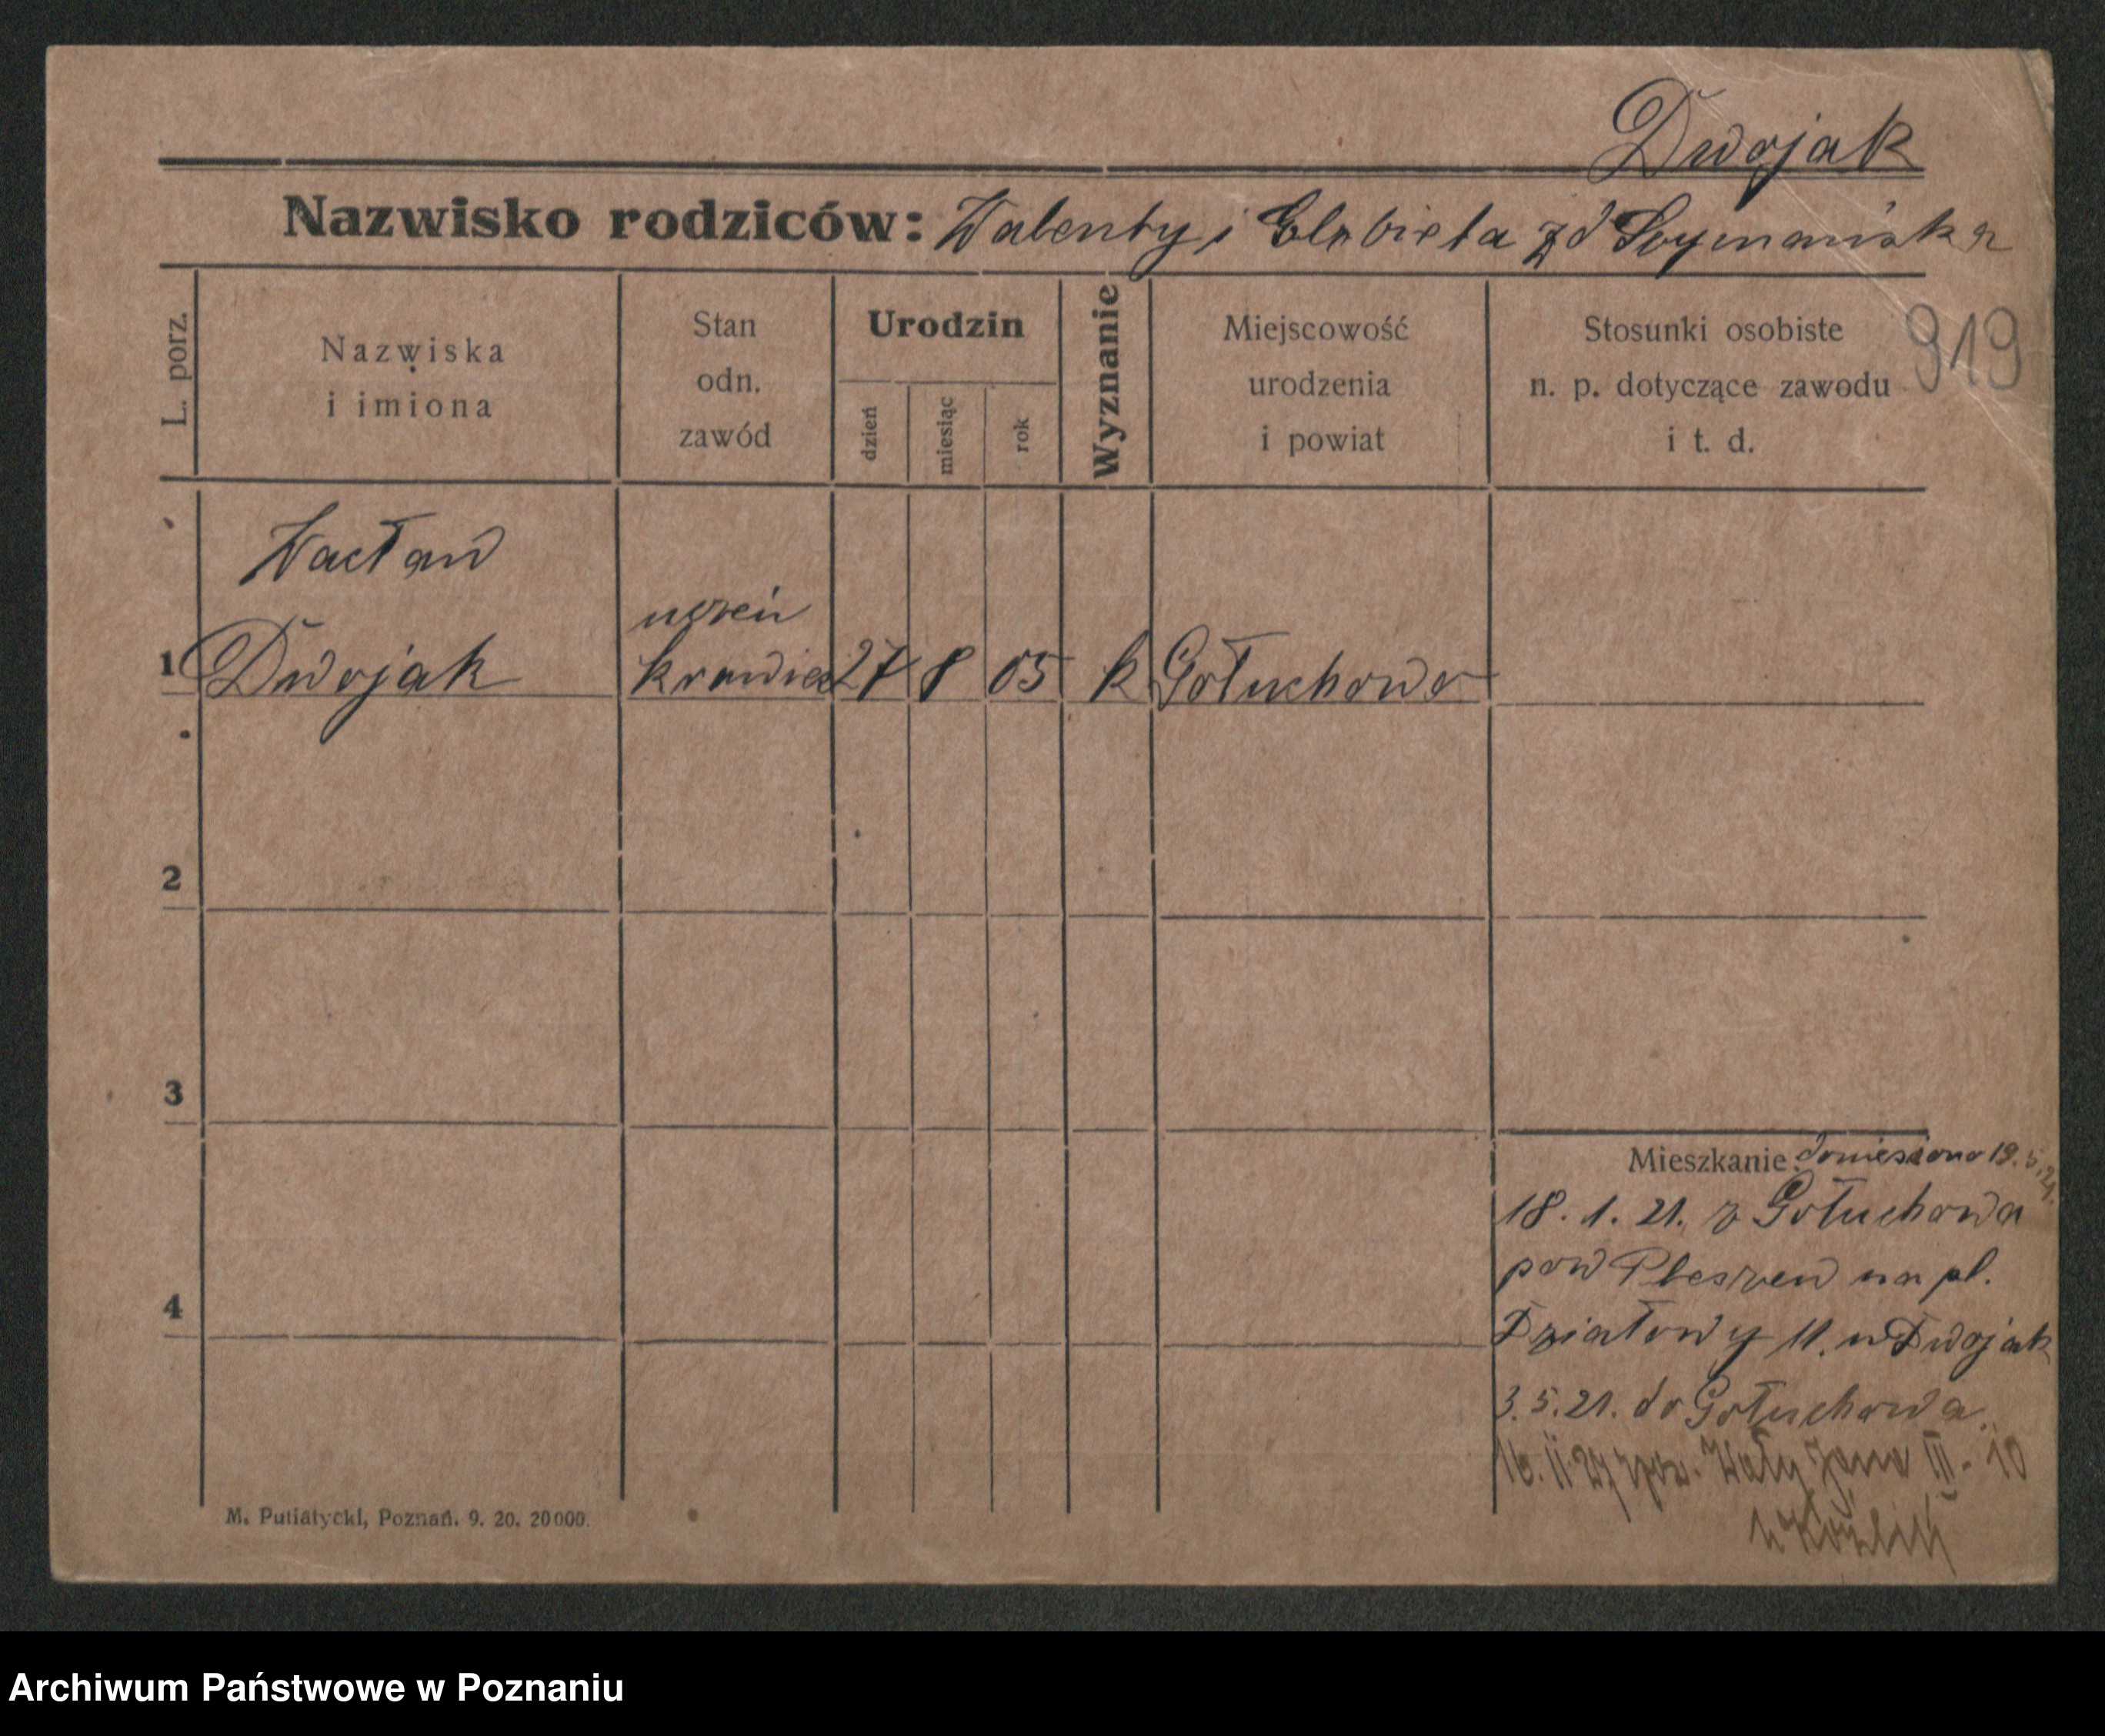 Dwojak
Nazwisko rodziców: Walenty i Elzbieta zd Szymańska
L. porz.
Nazwiska
i imiona
Stan
odn.
zawód
Urodzin
dzień
miesiąc
rok
Wyznanie
Miejscowość
urodzenia
i powiat
Stosunki osobiste
n. p. dotyczące zawodu
i t. d.
919
Wacław
uczeń
1 Dwojak krawiec 27 8 05 k Gołuchowo
2
3
Mieszkanie: doniesiono 19.5.21.
18. 1. 21. z Gołuchowa
pow Pleszew na pl.
4
Działowy 11. u Dwojak
3. 5. 21. do Gołuchowa.
16. 11. 27 Wały Jana III - 10
M. Putiatycki, Poznań. 9. 20. 20000.
Archiwum Państwowe w Poznaniu